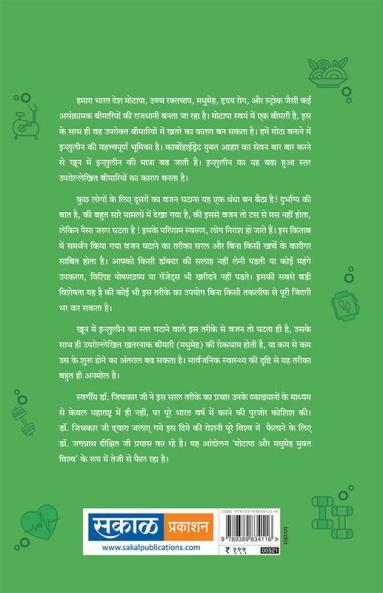 हमारा भारत देश मोटापा, उच्च रक्तचाप, मधुमेह, हृदय रोग, और स्ट्रोक जैसी कई
असंक्रामक बीमारियों की राजधानी बनता जा रहा है। मोटापा स्वयं में एक बीमारी है, इस
के साथ ही वह उपरोक्त बीमारियों में खतरे का कारण बन सकता है। हमें मोटा बनाने में
इन्शुलीन की महत्त्वपूर्ण भूमिका है। कार्बोहाईड्रेट युक्त आहार का सेवन बार बार करने
से खून में इन्शुलीन की मात्रा बढ जाती है। इन्शुलीन का यह बढा हुआ स्तर
उपरोल्लेखित बीमारियों का कारण बनता है।
कुछ लोगों के लिए दूसरों का वजन घटाना यह एक धंधा बन बैठा है! दुर्भाग्य की
बात है, की बहुत सारे मामलों में देखा गया है, की इससे वजन तो टस से मस नहीं होता,
लेकिन पैसा जरूर घटता है! इसके परिणाम स्वरूप, लोग निराश हो जाते हैं। इस किताब
में समर्थन किया गया वजन घटाने का तरीका सरल और बिना किसी खर्चे के कारीगर
साबित होता है। आपको किसी डॉक्टर की सलाह नहीं लेनी पडती या कोई महंगे
उपकरण, विशिष्ट पोषणद्रव्य या गॅजेट्स भी खरीदने नहीं पडते। इसकी सबसे बडी
विशेषता यह है की कोई भी इस तरीके का उपयोग बिना किसी तकलीफ से पूरी जिंदगी
भर कर सकता है।
खून में इन्शुलीन का स्तर घटाने वाले इस तरीके से वजन तो घटता ही है, उसके
साथ ही उपरोल्लेखित खतरनाक बीमारी (मधुमेह) की रोकथाम होती है, या कम से कम
उस के शुरू होने का अंतराल बढ सकता है। सार्वजनिक स्वास्थ्य की दृष्टि से यह तरीका
बहुत ही अनमोल है।
स्वर्गीय डॉ. जिचकार जी ने इस सरल तरीके का प्रचार उनके व्याख्यानों के माध्यम
से केवल महाराष्ट्र में ही नहीं, पर पूरे भारत वर्ष में करने की पुरजोर कोशिश की।
डॉ. जिचकार जी द्वारा जलाए गये इस दिये की रोशनी पूरे विश्व में फैलाने के लिए
डॉ. जगन्नाथ दीक्षित जी प्रयास कर रहे है। यह आंदोलन 'मोटापा और मधुमेह मुक्त
विश्व' के रूप में तेजी से फैल रहा है।
सकाळ प्रकाशन
www.sakalpublications.com
9 789389 834116
₹ १९९
00521